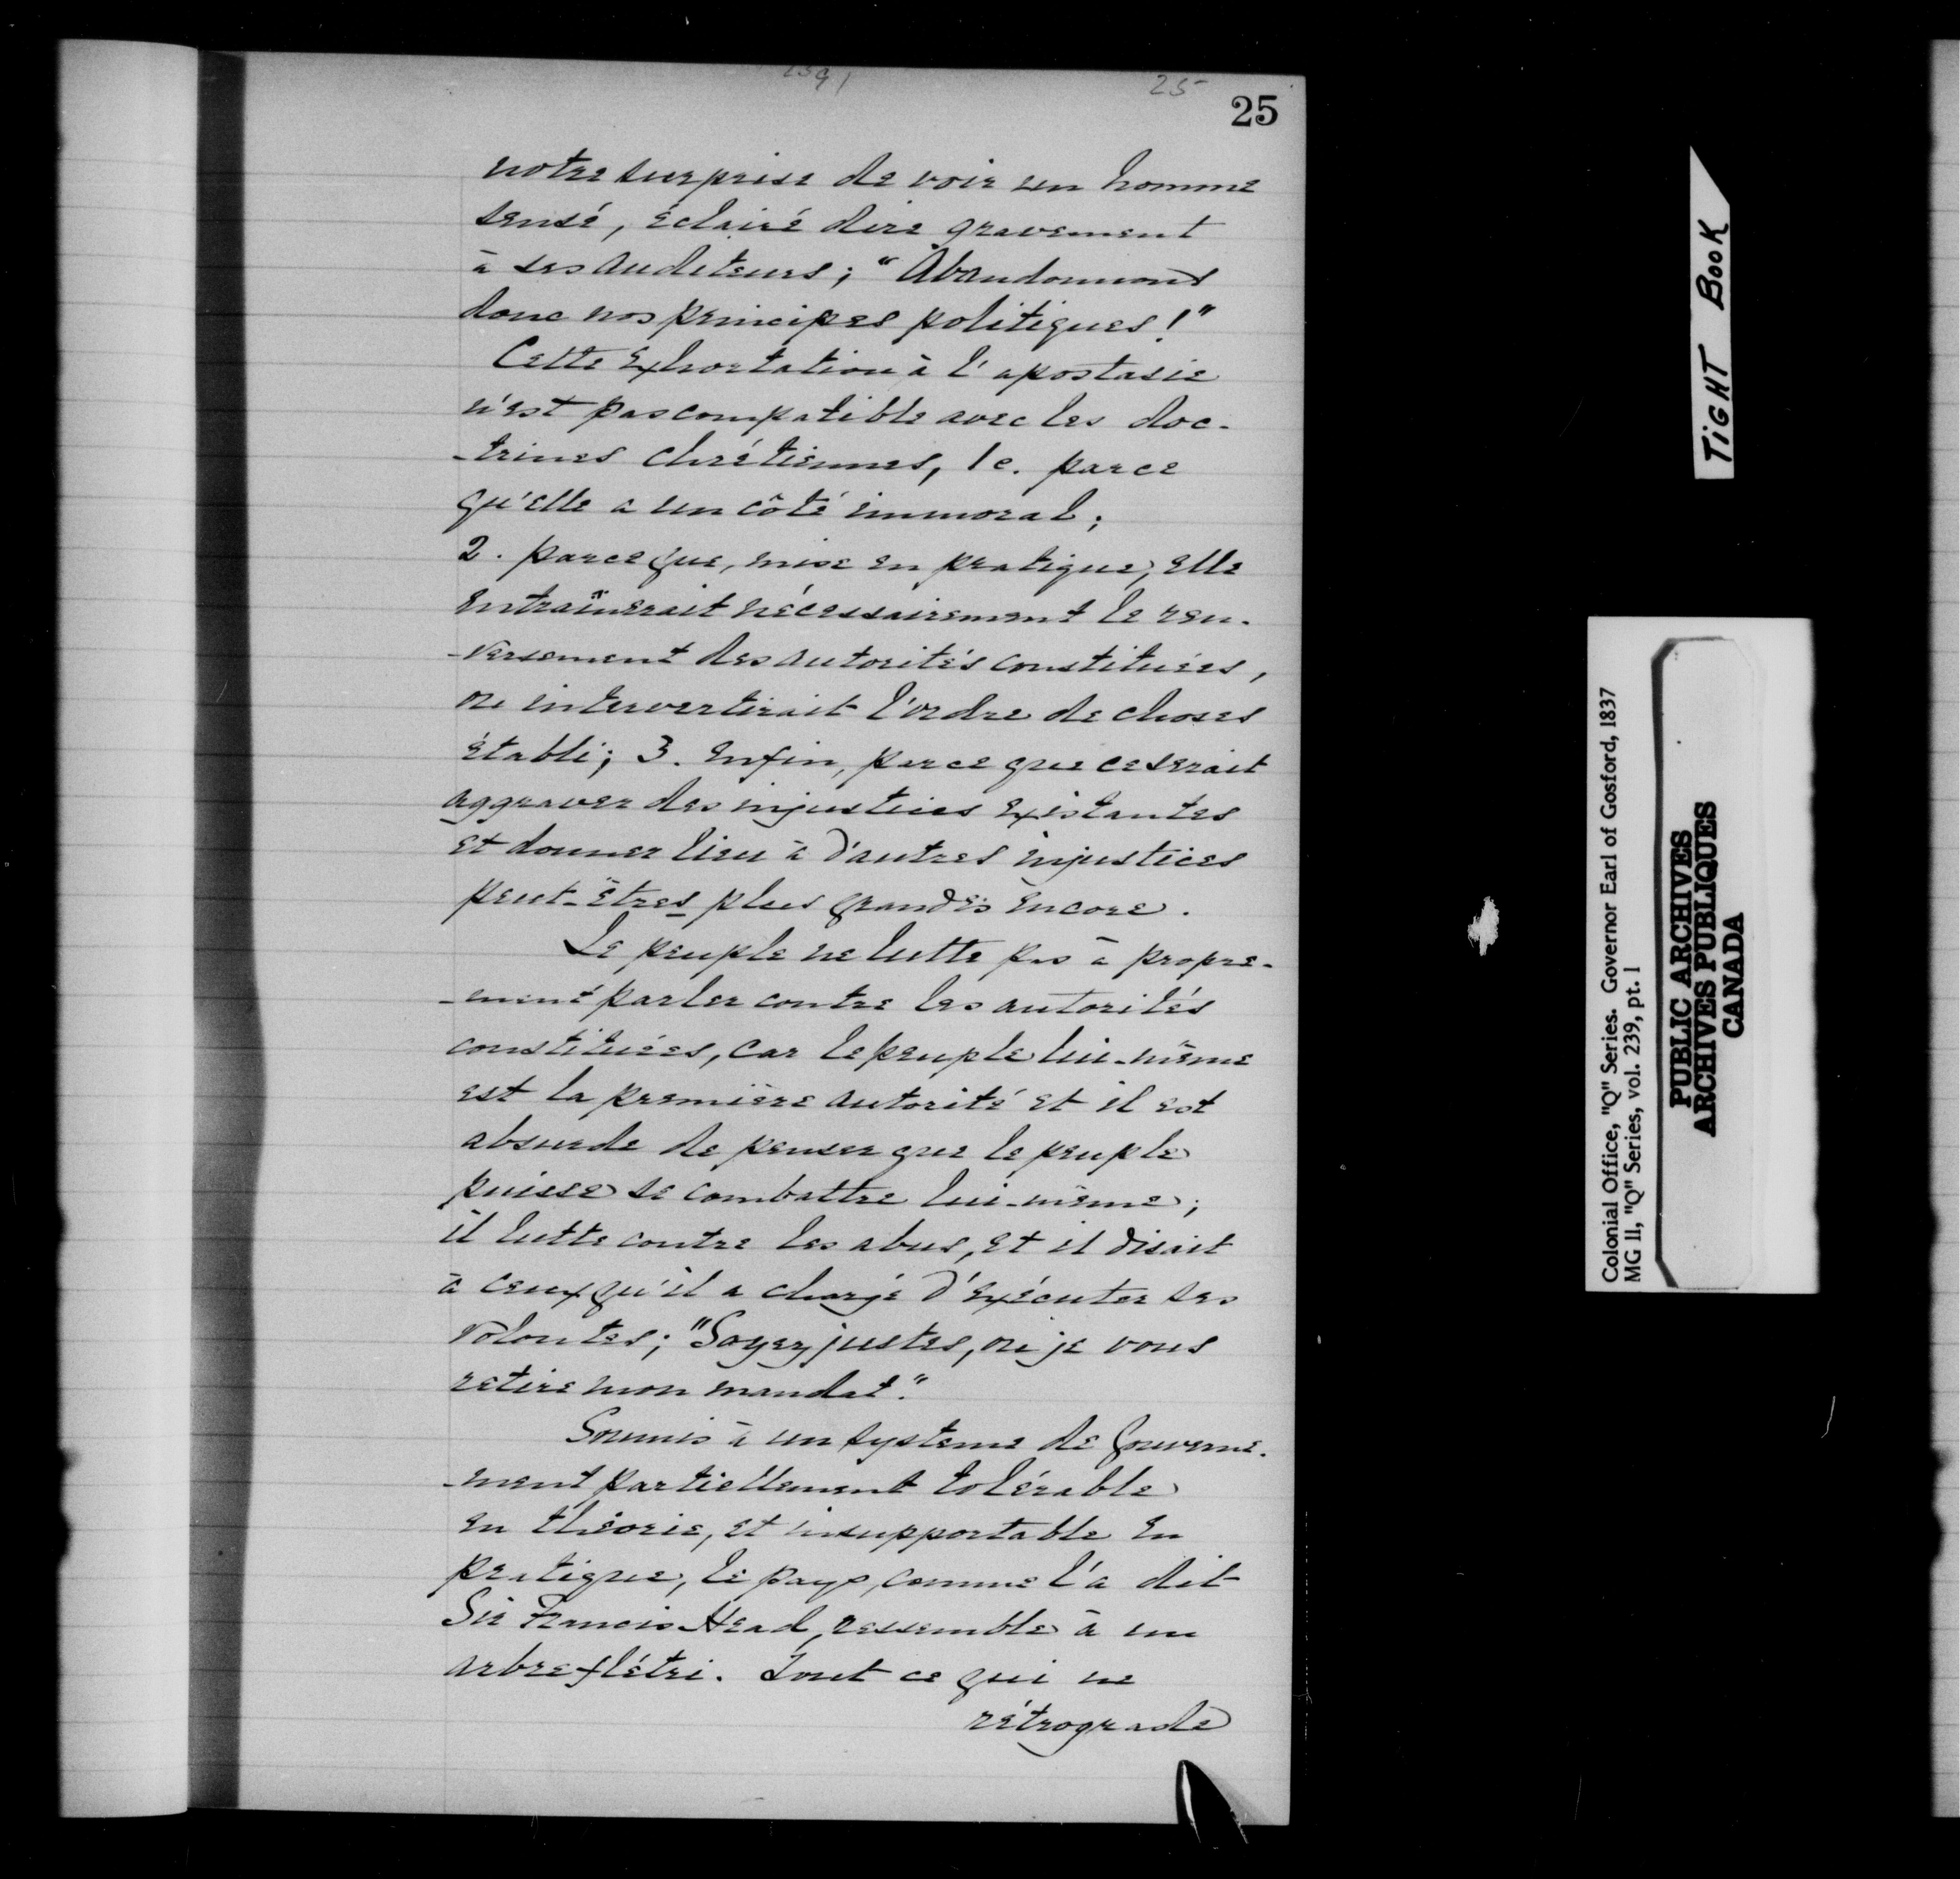 25
25
notre surprise de voir un homme
sensé, éclairé dire gravement
à ses auditeurs; "Abandonnons
donc nos principes politiques!"
Cette exhortation à l'apostasie
n'est pas compatible avec les doc-
-trines chrétiennes, 1e. parce
qu'elle a un côté immoral;
2. parce que, mise en pratique, elle
entraînerait nécessairement le ren-
-versement des autorités constituées,
ou intervertirait l'ordre de choses
établi; 3. Enfin, parce que ce serait
aggraver des injustices existantes
et donner lieu à d'autres injustices
peut-êtres plus grandes encore.
Le peuple ne lutte pas à propre-
-ment parler contre les autorités
constituées, car le peuple lui-même
est la première autorité et il est
absurde de penser que le peuple
puisse se combattre lui-même;
il lutte contre les abus, et il disait
à ceux qu'il a chargé d'exécuter ses
volontes; "Soyez justes, ou je vous
retire mon mandat."
Soumis à un systeme de Gouverne-
-ment partiellement tolérable
en théorie, et insupportable en
pratique, le pays, comme l'a dit
Sir Francis Head, ressemble à un
arbre flétri. Tout ce qui ne
rétrograde
TIGHT BOOK
Colonial Office, "Q" Series. Governor Earl of Gosford, 1837
MG 11, "Q" Series, vol. 239, pt. 1
PUBLIC ARCHIVES
ARCHIVES PUBLIQUES
CANADA